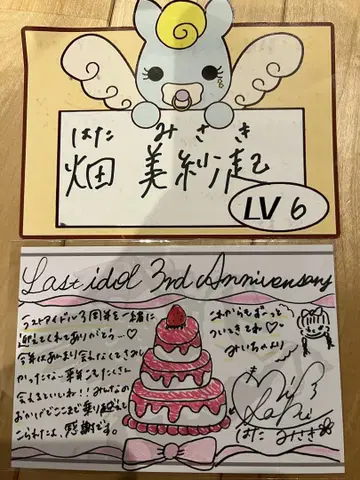 はた みさき
畑 美紗起
LV 6
Last idol 3rd Anniversary
ラストアイドル3周年を一緒に
迎えてくれてありがとう…♡
今年はあまり会えなくてさみし
かったなー 来年もたくさん
会えるといいね!! みんなの
おかげでここまで乗り越えて
こられたよ、感謝です。
これからもずーっと
ついてきてね♡
みいちゃんり
はた みさき